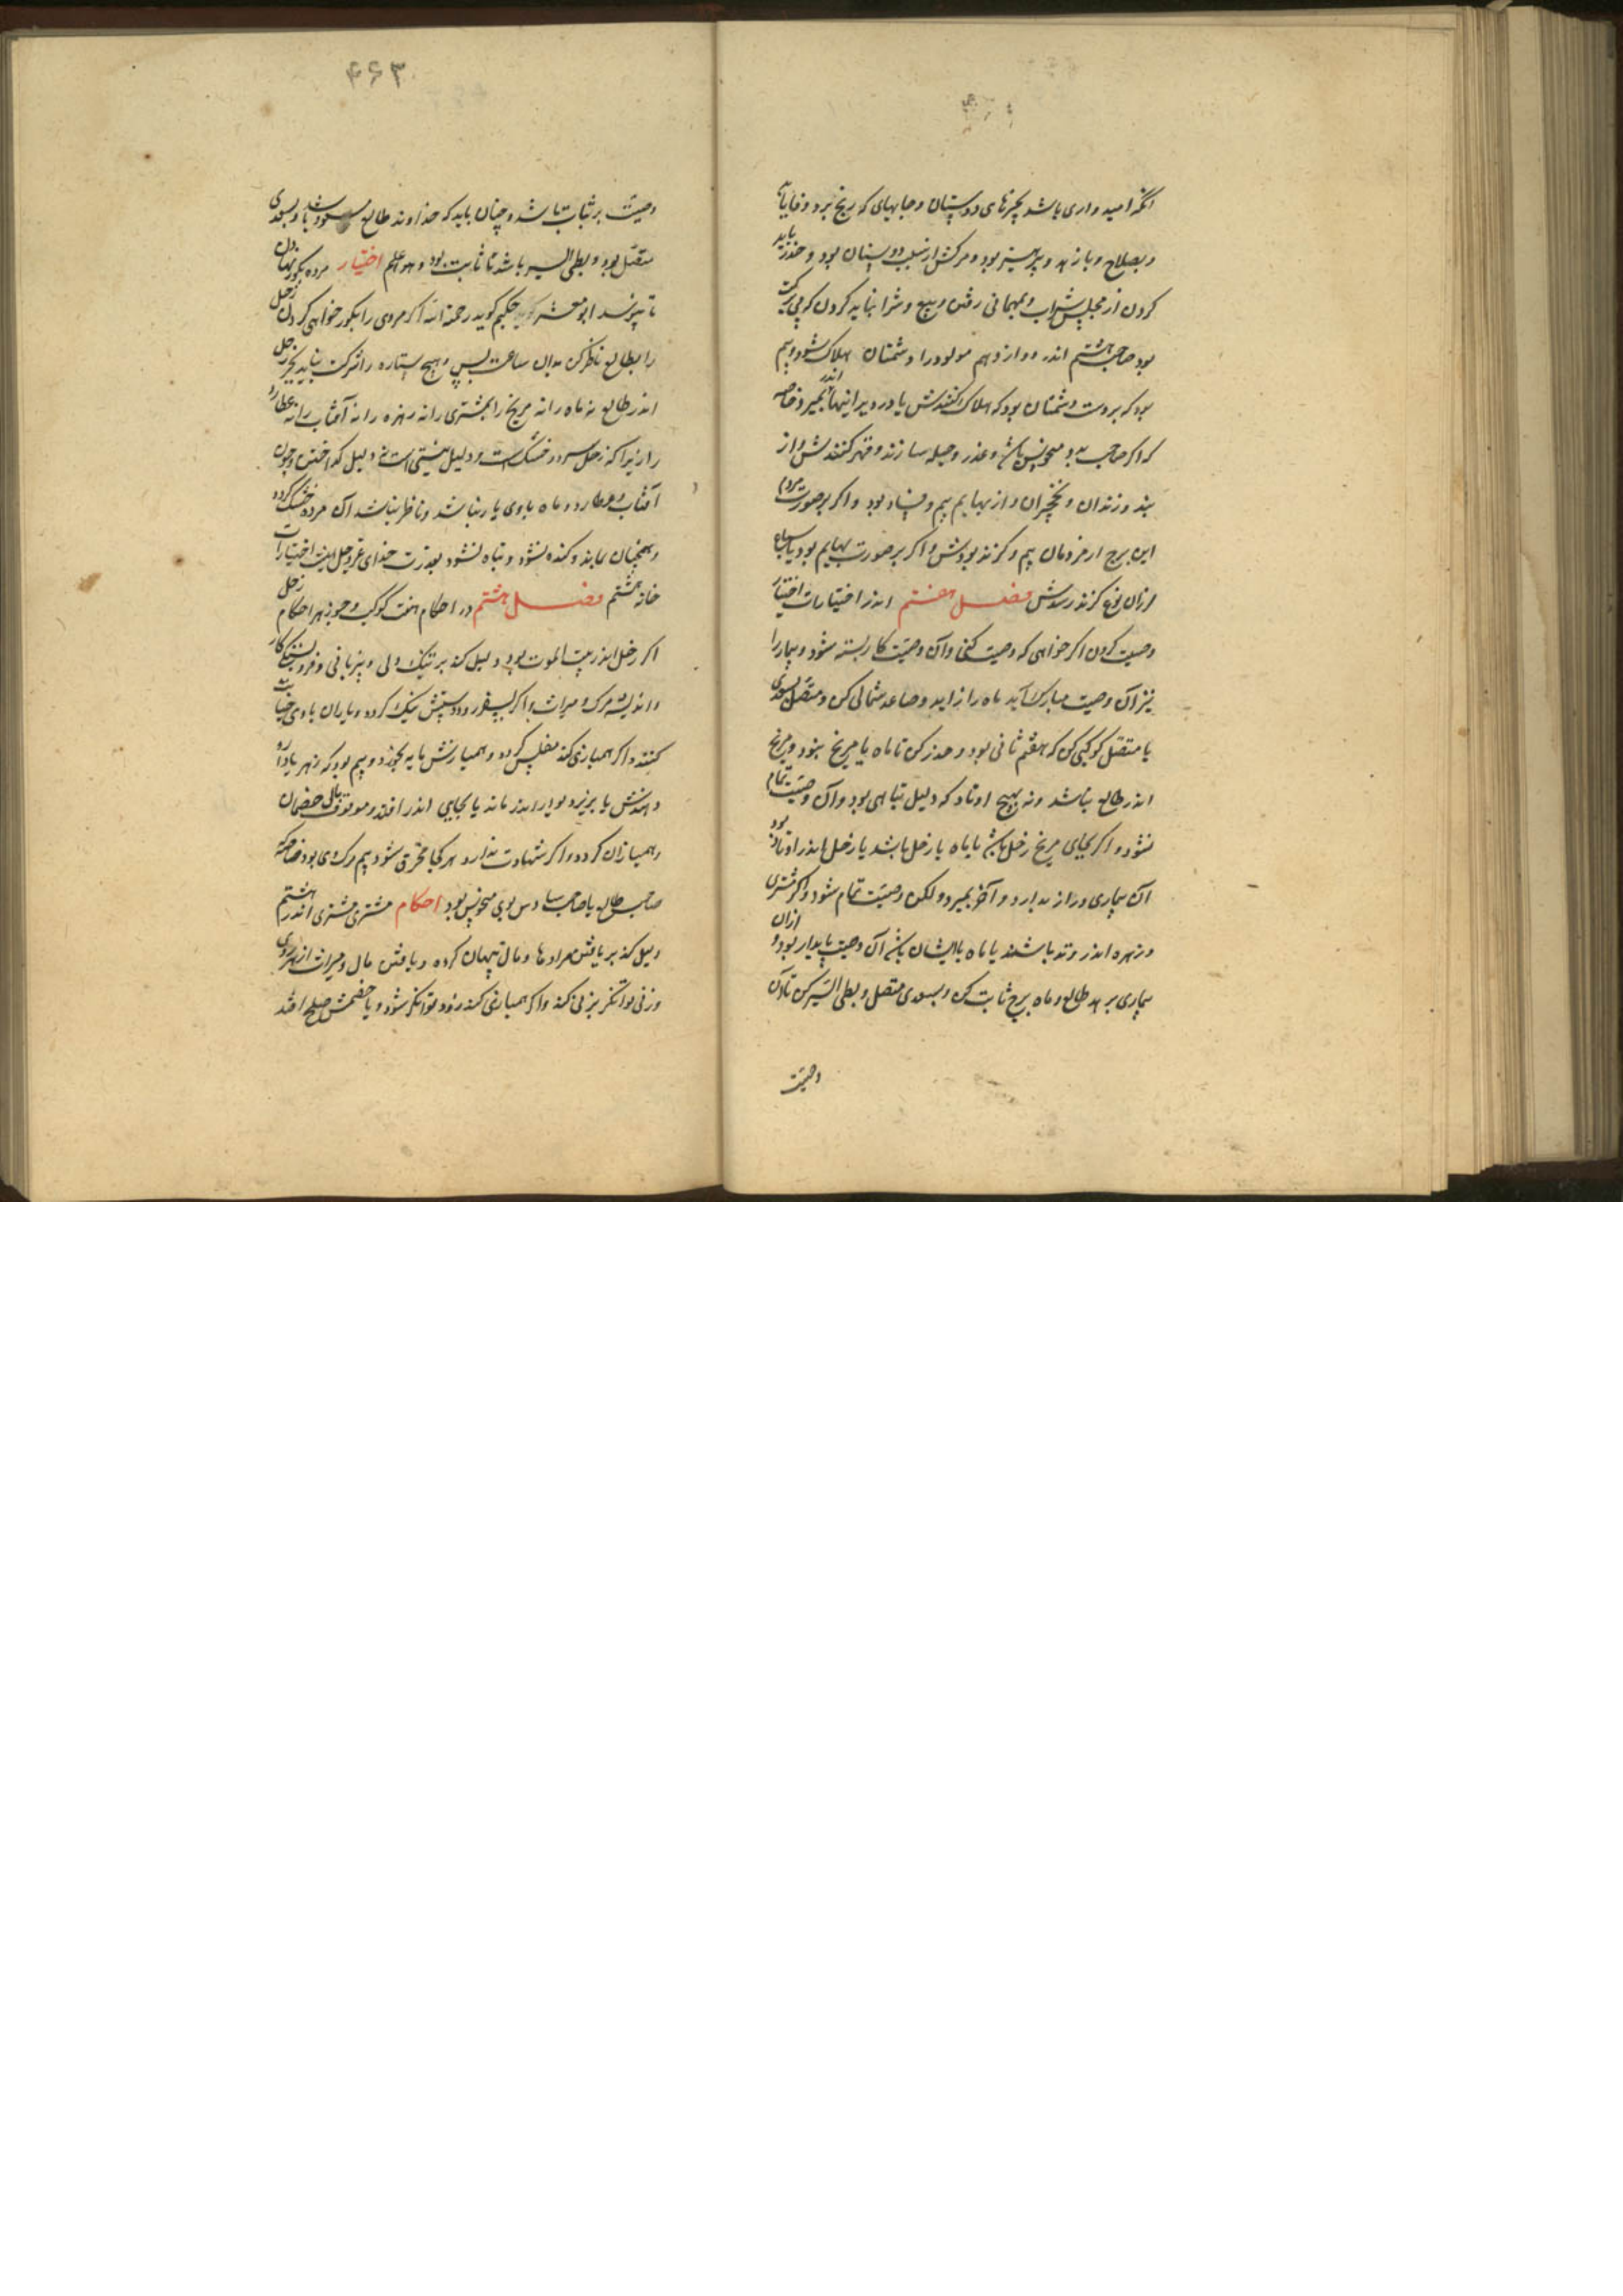 انگه امیدواری باشد بچیزهای دوستان و جایهای که رنج برد وفا یابد
و بصلاح و با زهد و پرهیز بود و مرکش از سبب دوستان بود و حذر باید
کردن از مجلس شراب و بمهمانی رفتن و بیع و شرا نباید کردن که بی برکت
بود صاحب هشتم اندر دوازدهم مولود را دشمنان هلاک شود و بیم
بود که بر دست دشمنان بود که هلاک کنندش یا در ویرانیها اندر بمیرد خاصه
که اگر صاحب به و منحوس باشد و غدر و حیله سازند و قهر کنندش و از
بند و زندان و نخچیران و از بهایم بیم و فساد بود و اگر بر صورت مردم
این برج از مردمان بیم و گزند بودش و اگر بر صورت بهایم بود یا سباع
از آن نوع گزند رسدش فصل هفتم اندر اختیارات اختیار
وصیت کردن اگر خواهی که وصیت کنی و آن وصیت کار بسته شود و بیمار را
نیز آن وصیت مبارک آید ماه را زاید و صاعد شمالی کن و متصل بسعدی
یا متصل کوکبی کن که هفتم ثانی بود و حذر کن تا ماه با مریخ نبود و مریخ
اندر طالع نباشد و نه بهیچ اوتاد که دلیل تباهی بود و آن وصیت تمام
نشود و اگر بجای مریخ زحل باشد یا ماه با زحل باشد یا زحل اندر اوتاد بود
آن بیماری دراز ندارد و آخر بمیرد و لکن وصیت تمام شود و اگر مشتری
و زهره اندر وتد باشند یا ماه با ایشان باشد آن وصیت پایدار بود و از آن
بیماری برهد طالع و ماه برج ثابت کن و بسعدی متصل و بطی السیر کن تا آن
وصیت
۴۶۳
وصیت بر ثبات باشد و چنان باید که خداوند طالع مسعود باشد و بسعدی
متصل بود و بطی السیر باشد تا ثابت بود و هو اعلم اختیار مرده بکور نهادن
تا نپوسد ابو معشر حکیم گوید رحمة الله اگر مردی را بکور خواهی کردن زحل
را بطالع ناظر کن بدان ساعت بس و هیچ ستاره را شرکت نباید بجز زحل
اندر طالع نه ماه را نه مریخ را نه مشتری را نه زهره را نه آفتاب را نه عطارد
را زیرا که زحل سرد و خشک است و دلیل نیستی است نه دلیل گداختن و چون
آفتاب و عطارد و ماه با وی یار نباشد و ناظر نباشد آن مرده خشک گردد
و همچنان بماند و گنده نشود و تباه نشود بقدرت خدای عز و جل اینست اختیارات
خانه هشتم فصل هشتم در احکام هفت کوکب و جوزهر احکام زحل
اگر زحل اندر بیت الموت بود دلیل کند بر تنک دلی و بدزبانی و فروبستگی کار
و اندیشه مرک و میراث و اگر بسفر رود دستش تنک گردد و یاران با وی خیانت
کنند و اگر همبازی کند مفلس گردد و همبازش مایه بخورد و بیم بود که زهر یا دارو
دهندش یا بر زیر دیوار اندر ماند یا بجایی اندر افتد و موقوف مال خصمان
و همبازان گردد و اگر شهادت ندارد هر کجا محترق شود بیم مرک وی بود خاصه که
صاحب طالع یا صاحب سادس بوی منحوس بود احکام مشتری مشتری اندر هشتم
دلیل کند بر یافتن مرادها و مال پنهان کرده و یافتن مال و میراث از هر روی
و زنی توانگر بزنی کند و اگر همبازی کند زود توانگر شود و با خصمش صلح افتد